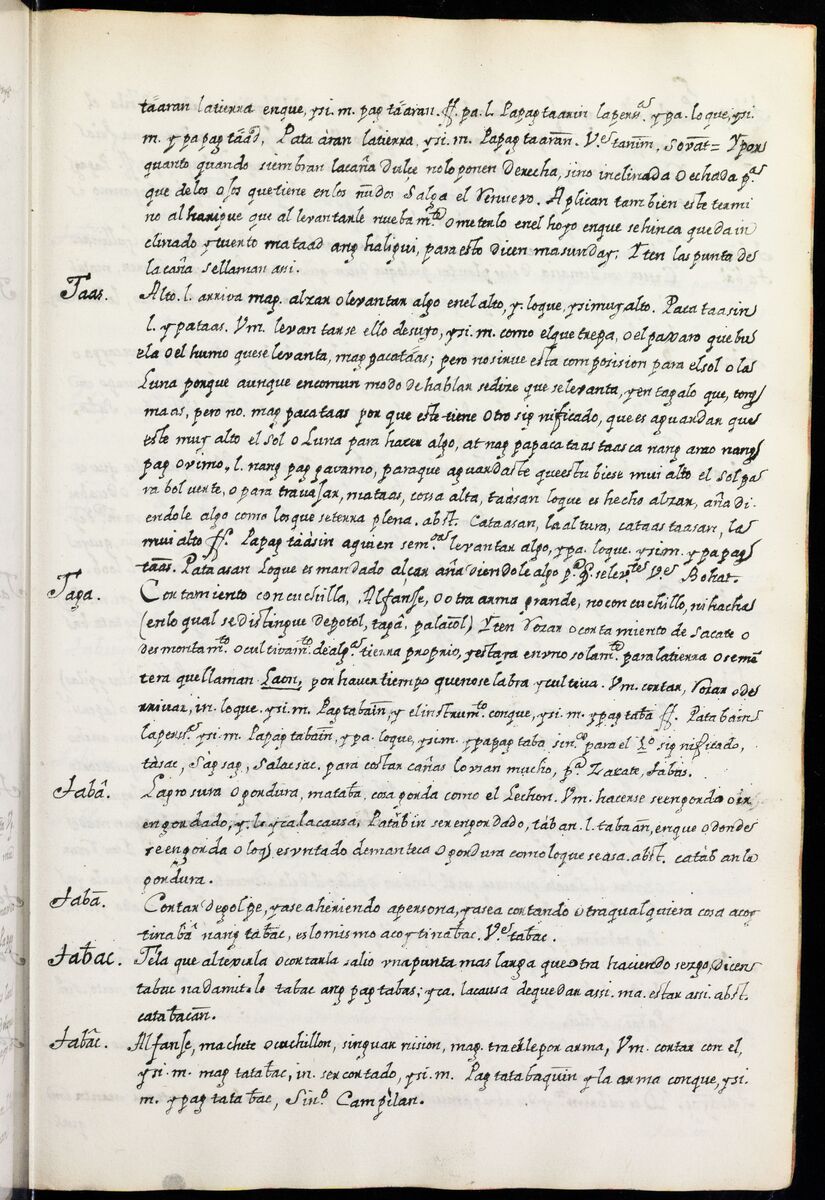 tȃaran latierra enque, ysi.m. pag tȃaran. ff. pa. l. Papagtaarin lapers.ᵃˢ ypa. loque, ysi.
m. ypapag tȃad, Pata àran latierra, ysi.m. Papagtaarañ. V.ᵉˢ tanim, Sovat = Ypor
quanto quando siembran lacaña dulce noloponen derecha, sino inclinada o echada p.ᵃ
que delos ojos quetiene enlos ñudos Salga el Renuevo. Aplican tambien este termi
no al harique que al levantarle nuebam.ᵗᵉ o meterlo enel hoyo enque sehinca queda in
clinado ytuerto mataad ang haligui, paraesto dicen masunday; Yten las punta de
lacaña sellaman asi.
Taas. Alto. l. arriva mag. alzar olevantar algo enel alto, y. loque, ysimuyalto. Paca taasin
l. ypataas. Vm. levantarse ello desuyo, ysi.m. como elque trepa, oelpaxaro que bu
ela oel humo quese levanta, mag pacatáas; pero nosirue esta composision para elsol o la
Luna porque aunque encomun modo de hablar sedize que selevanta, yentagalo que, tong
maas, pero no. mag pacataas por que este tiene otro significado, que es aguardar que
este muy alto el sol o Luna para hacer algo, at nag papacataastaasca nang arao nang
pag ovimo. l. nang pag gavamo, paraque aguardaste queestubiese mui alto el sol pa
ra bolverte, o para travajar, mataas, cossa alta, taàsan loque es hecho alzar, aña di
endole algo como losque seterraplena. abst. Cataasan, la altura, cataastaasan, la
mui alto ff. Papag tàasin aquien sem.ᵃ levantar algo, ypa. loque. ysi.m. ypapag
tȃas. Pata asan loque es mandado alçar aña diendole algo p.ᵃ q. selevᵗᵉ V.ᵉˢ Bohat.
Taga. Cortamiento con cuchilla, Alfanje, o otra arma grande, no con cuchillo, ni hacha
(enlo qual se distingue depotol, tapȃ, palacol) Yten Rozar o corta miento de sacate o
desmontam.ᵗᵒ ocultivam.ᵗᵒ dealg.ᵃ tierra proprio, yestara enuno solam.ᵗᵉ paralatierra o semē
tera quellaman Laon, por haver tiempo quenose labra ycultiva. Vm. cortar, Rozar o de
rrivar, in. loque. ysi.m. Pagtabain, y elinstrum.ᵗᵒ conque, ysi.m. ypagtaba ff. Patabain
lapers.ᵃ ysi.m. Papagtabain, ypa. loque, ysi.m. ypapagtaba sin.º para el 1.º significado,
tàsac, Sapsap, Salacsac. para cortar cañas lo usan mucho, p.ᵃ Zacate, tabas.
tabȃ. La grosura o gordura, mataba, cosa gorda como el Lechon. Vm. hacerse seengorda o ir
engordado, y. lo yca. la causa, Patàbin ser engordado, tàban. l. tabaan, enque o donde
se engorda o loq̃ es vntado demanteca o gordura como loque se asa. abst. catàb anla
gordura.
tabȃ. Cortar degolpe, yase ahiriendo apersona, yasea cortando otraqualquiera cosa acoy
tinabȃ nang tabac, es lo mismo acoytinabac. V.ᵉˢ tabac.
tabac. Tela que altexerla ocortarla salio vnapunta mas larga que otra haciendo sezgo, dicen
tabac nadamit. lo tabac ang pag tabas; yca. la causa dequedar assi. ma. estar assi. abst.
catabacan.
tabȃc. Alfanje, machete o cuchillon, singuarnision, mag. traerle por arma, Vm. cortar con el,
ysi.m. mag tatabac, in. ser cortado, ysi.m. Pag tatabaquin y la arma conque, ysi.
m. ypag tatabac, Sin.º Campìlan.